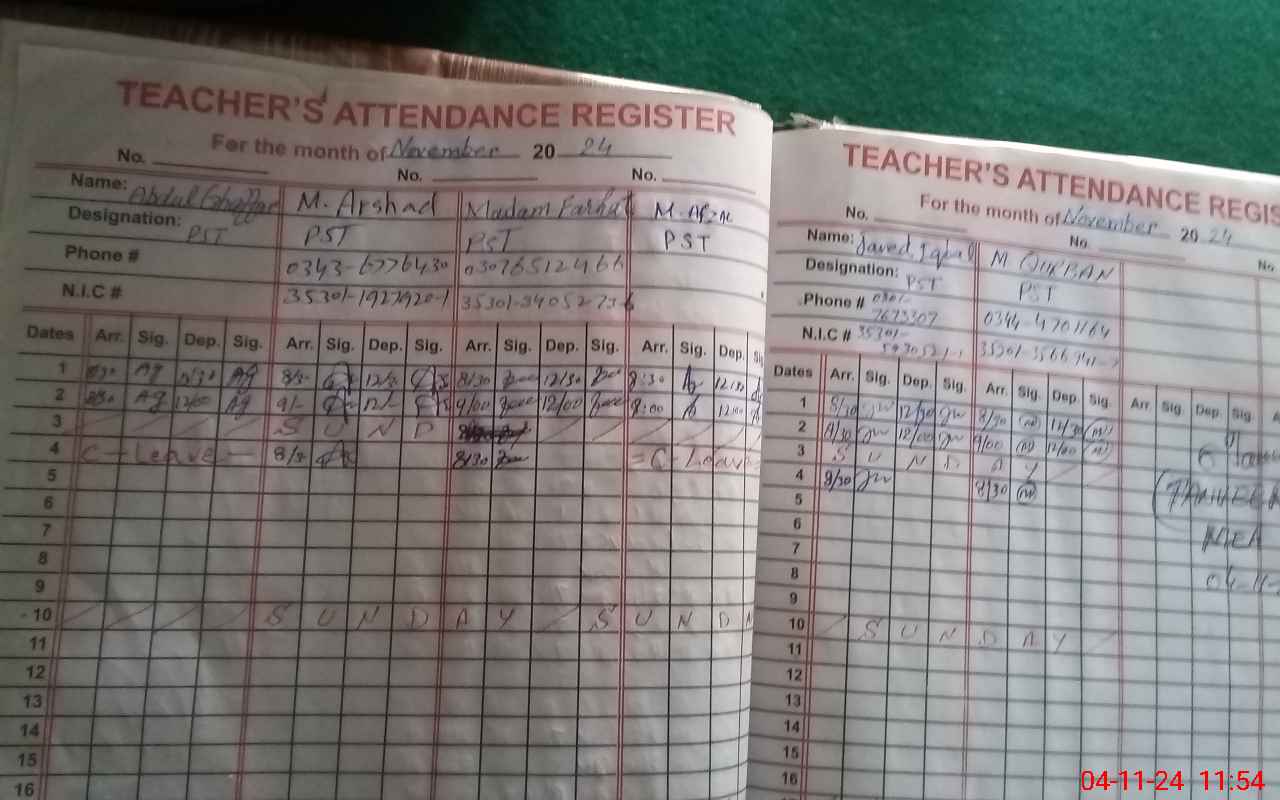 TEACHER'S ATTENDANCE REGISTER
For the month of November 20 24
No. No. No.
Name: Abdul Ghaffar M. Arshad Madam Farhat M. Afzal
Designation: PST PST PST PST
Phone # 0343-6776430 03076512466
N.I.C # 35301-1927920-1
Dates Arr. Sig. Dep. Sig. Arr. Sig. Dep. Sig. Arr. Sig. Dep. Sig. Arr. Sig. Dep. Sig
1 8/30 Ag 12/30 Ag 8/30 12/30 8/30 12/30 8:30 12:30
2 8/30 Ag 12/00 Ag 9/- 12/- 9/00 12/00 9:00 12:00
3 S U N D
4 C - Leave - 8/30 8/30 = C - Leave
5
6
7
8
9
10 S U N D A Y S U N D A
11
12
13
14
15
16
TEACHER'S ATTENDANCE REGIS
For the month of November 20 24
No. No. No.
Name: Javed Iqbal M QURBAN
Designation: PST PST
Phone # 0301-7673307 0344-4701164
N.I.C # 35301-
Dates Arr. Sig. Dep. Sig. Arr. Sig. Dep. Sig. Arr. Sig. Dep. Sig.
1 8/30 JW 12/30 JW 8/30 12/30
2 9/30 JW 12/00 JW 9/00 12/00
3 S U N D A Y
4 8/30 JW 8/30
5
6
7 MEA
8 04-11-
9
10 S U N D A Y
11
12
13
14
15
16
04-11-24 11:54